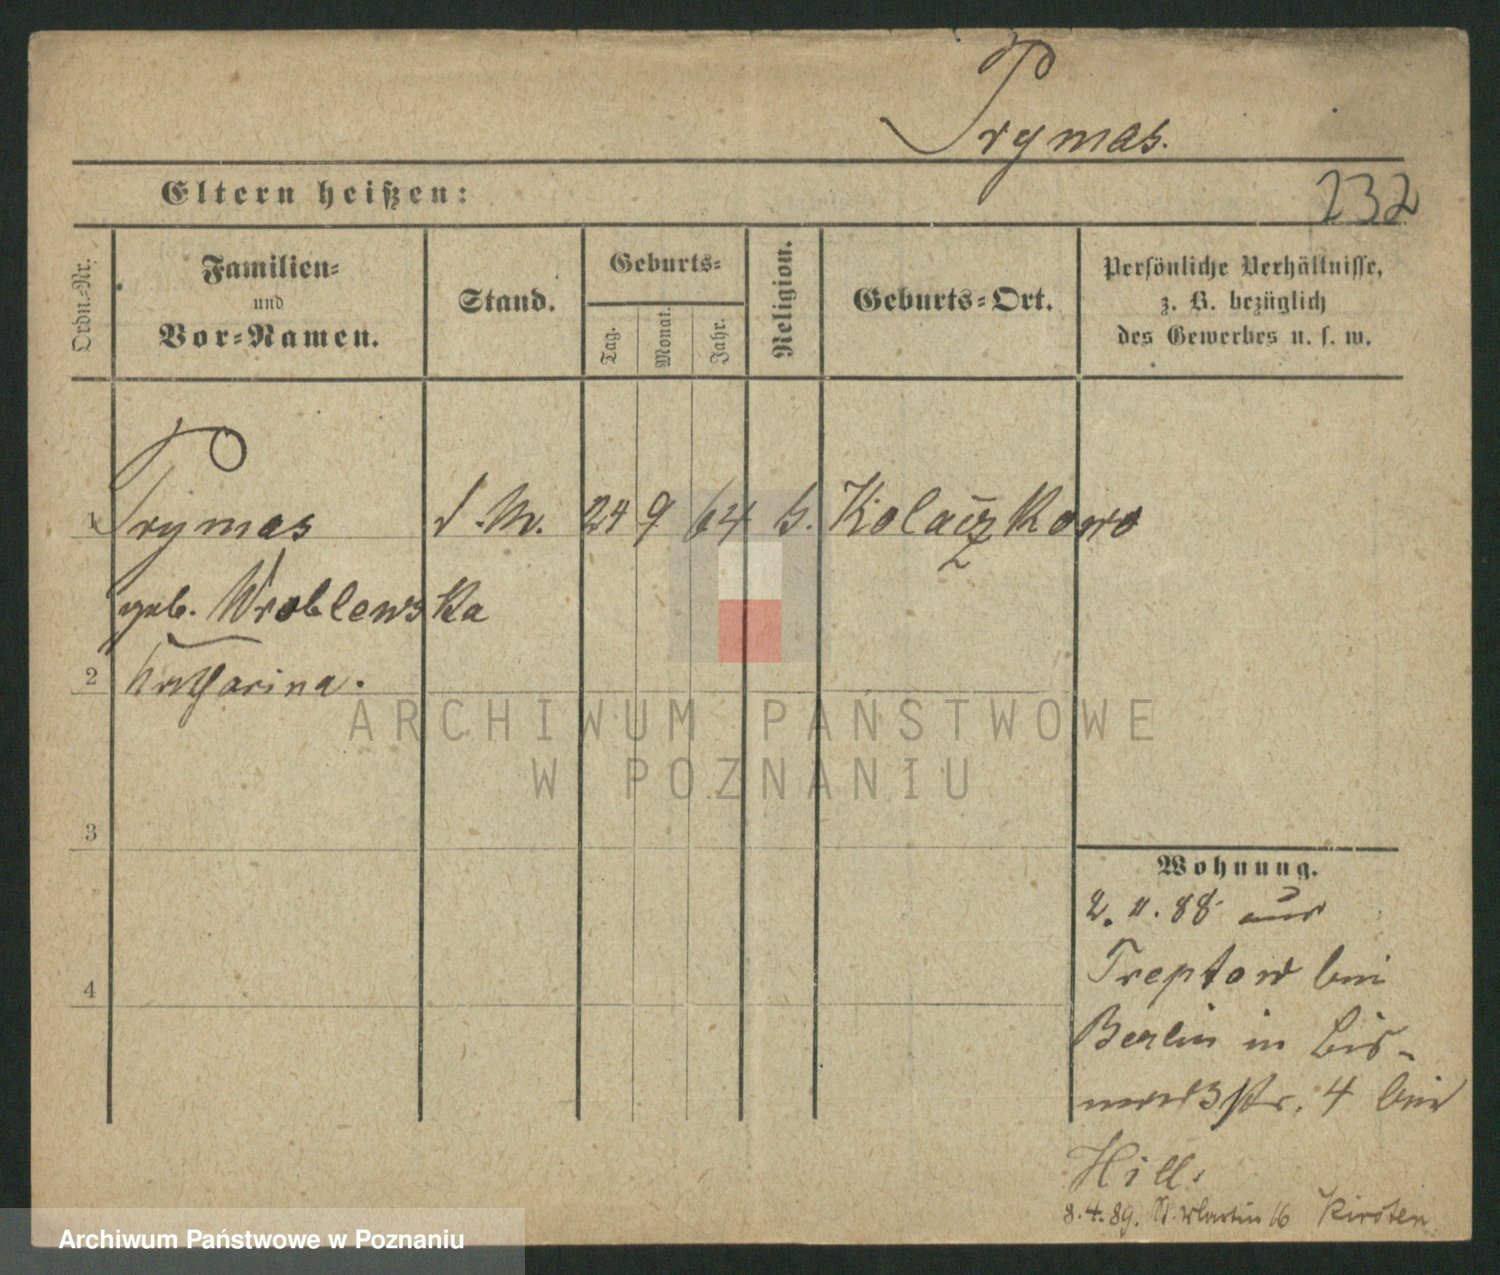 Prymas.
Eltern heißen:
232
Ordn.=Nr.
Familien=
und
Vor=Namen.
Stand.
Geburts=
Tag.
Monat.
Jahr.
Religion.
Geburts=Ort.
Persönliche Verhältnisse,
z. B. bezüglich
des Gewerbes u. s. w.
1 Prymas d. M. 24 9 64 k. Kolaczkowo
geb. Wroblewska
2 Katharina.
ARCHIWUM PAŃSTWOWE
W POZNANIU
3
Wohnung.
2. 11. 88 aus
Treptow bei
4
Berlin in Bis-
str. 4 bei
Hill.
8.4.89. St. Martin 16 Kirsten
Archiwum Państwowe w Poznaniu